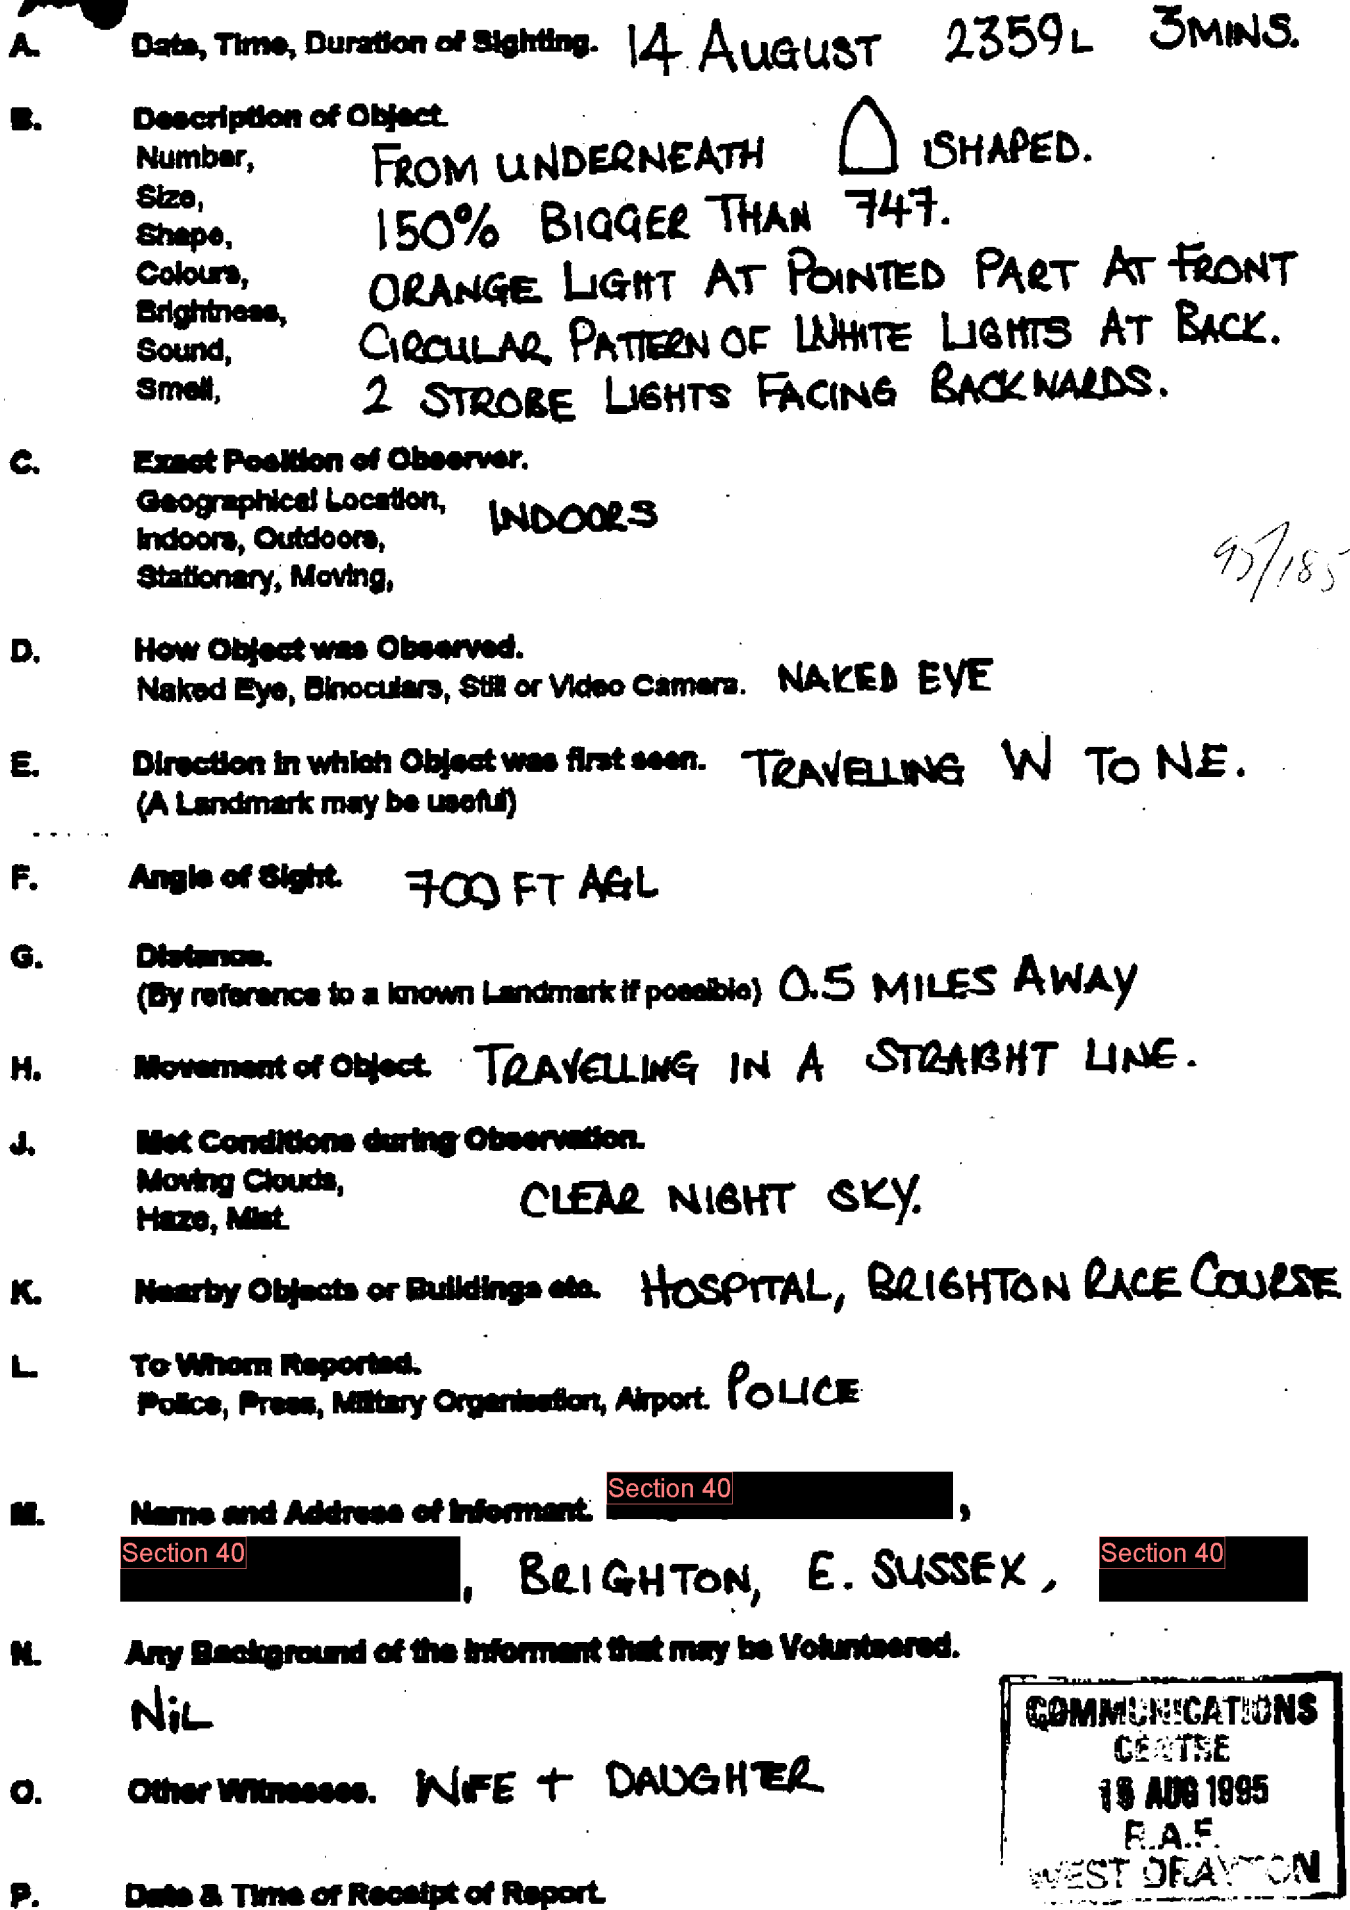 A. Date, Time, Duration of Sighting. 14 AUGUST 2359L 3MINS.
B. Description of Object.
Number, FROM UNDERNEATH SHAPED.
Size,
Shape, 150% BIGGER THAN 747.
Colours, ORANGE LIGHT AT POINTED PART AT FRONT
Brightness,
Sound, CIRCULAR PATTERN OF WHITE LIGHTS AT BACK.
Smell, 2 STROBE LIGHTS FACING BACKWARDS.
C. Exact Position of Observer.
Geographical Location, INDOORS
Indoors, Outdoors,
Stationary, Moving,
95/185
D. How Object was Observed.
Naked Eye, Binoculars, Still or Video Camera. NAKED EYE
E. Direction in which Object was first seen. TRAVELLING W TO NE.
(A Landmark may be useful)
F. Angle of Sight. 700 FT AGL
G. Distance.
(By reference to a known Landmark if possible) 0.5 MILES AWAY
H. Movement of Object. TRAVELLING IN A STRAIGHT LINE.
J. Met Conditions during Observation.
Moving Clouds, CLEAR NIGHT SKY.
Haze, Mist.
K. Nearby Objects or Buildings etc. HOSPITAL, BRIGHTON RACE COURSE
L. To Whom Reported.
Police, Press, Military Organisation, Airport. POLICE
M. Name and Address of Informant. Section 40,
Section 40, BRIGHTON, E. SUSSEX, Section 40
N. Any Background of the Informant that may be Volunteered.
NiL
O. Other Witnesses. WIFE + DAUGHTER
P. Date & Time of Receipt of Report.
COMMUNICATIONS
CENTRE
AUG 1995
R.A.F.
WEST DRAYTON